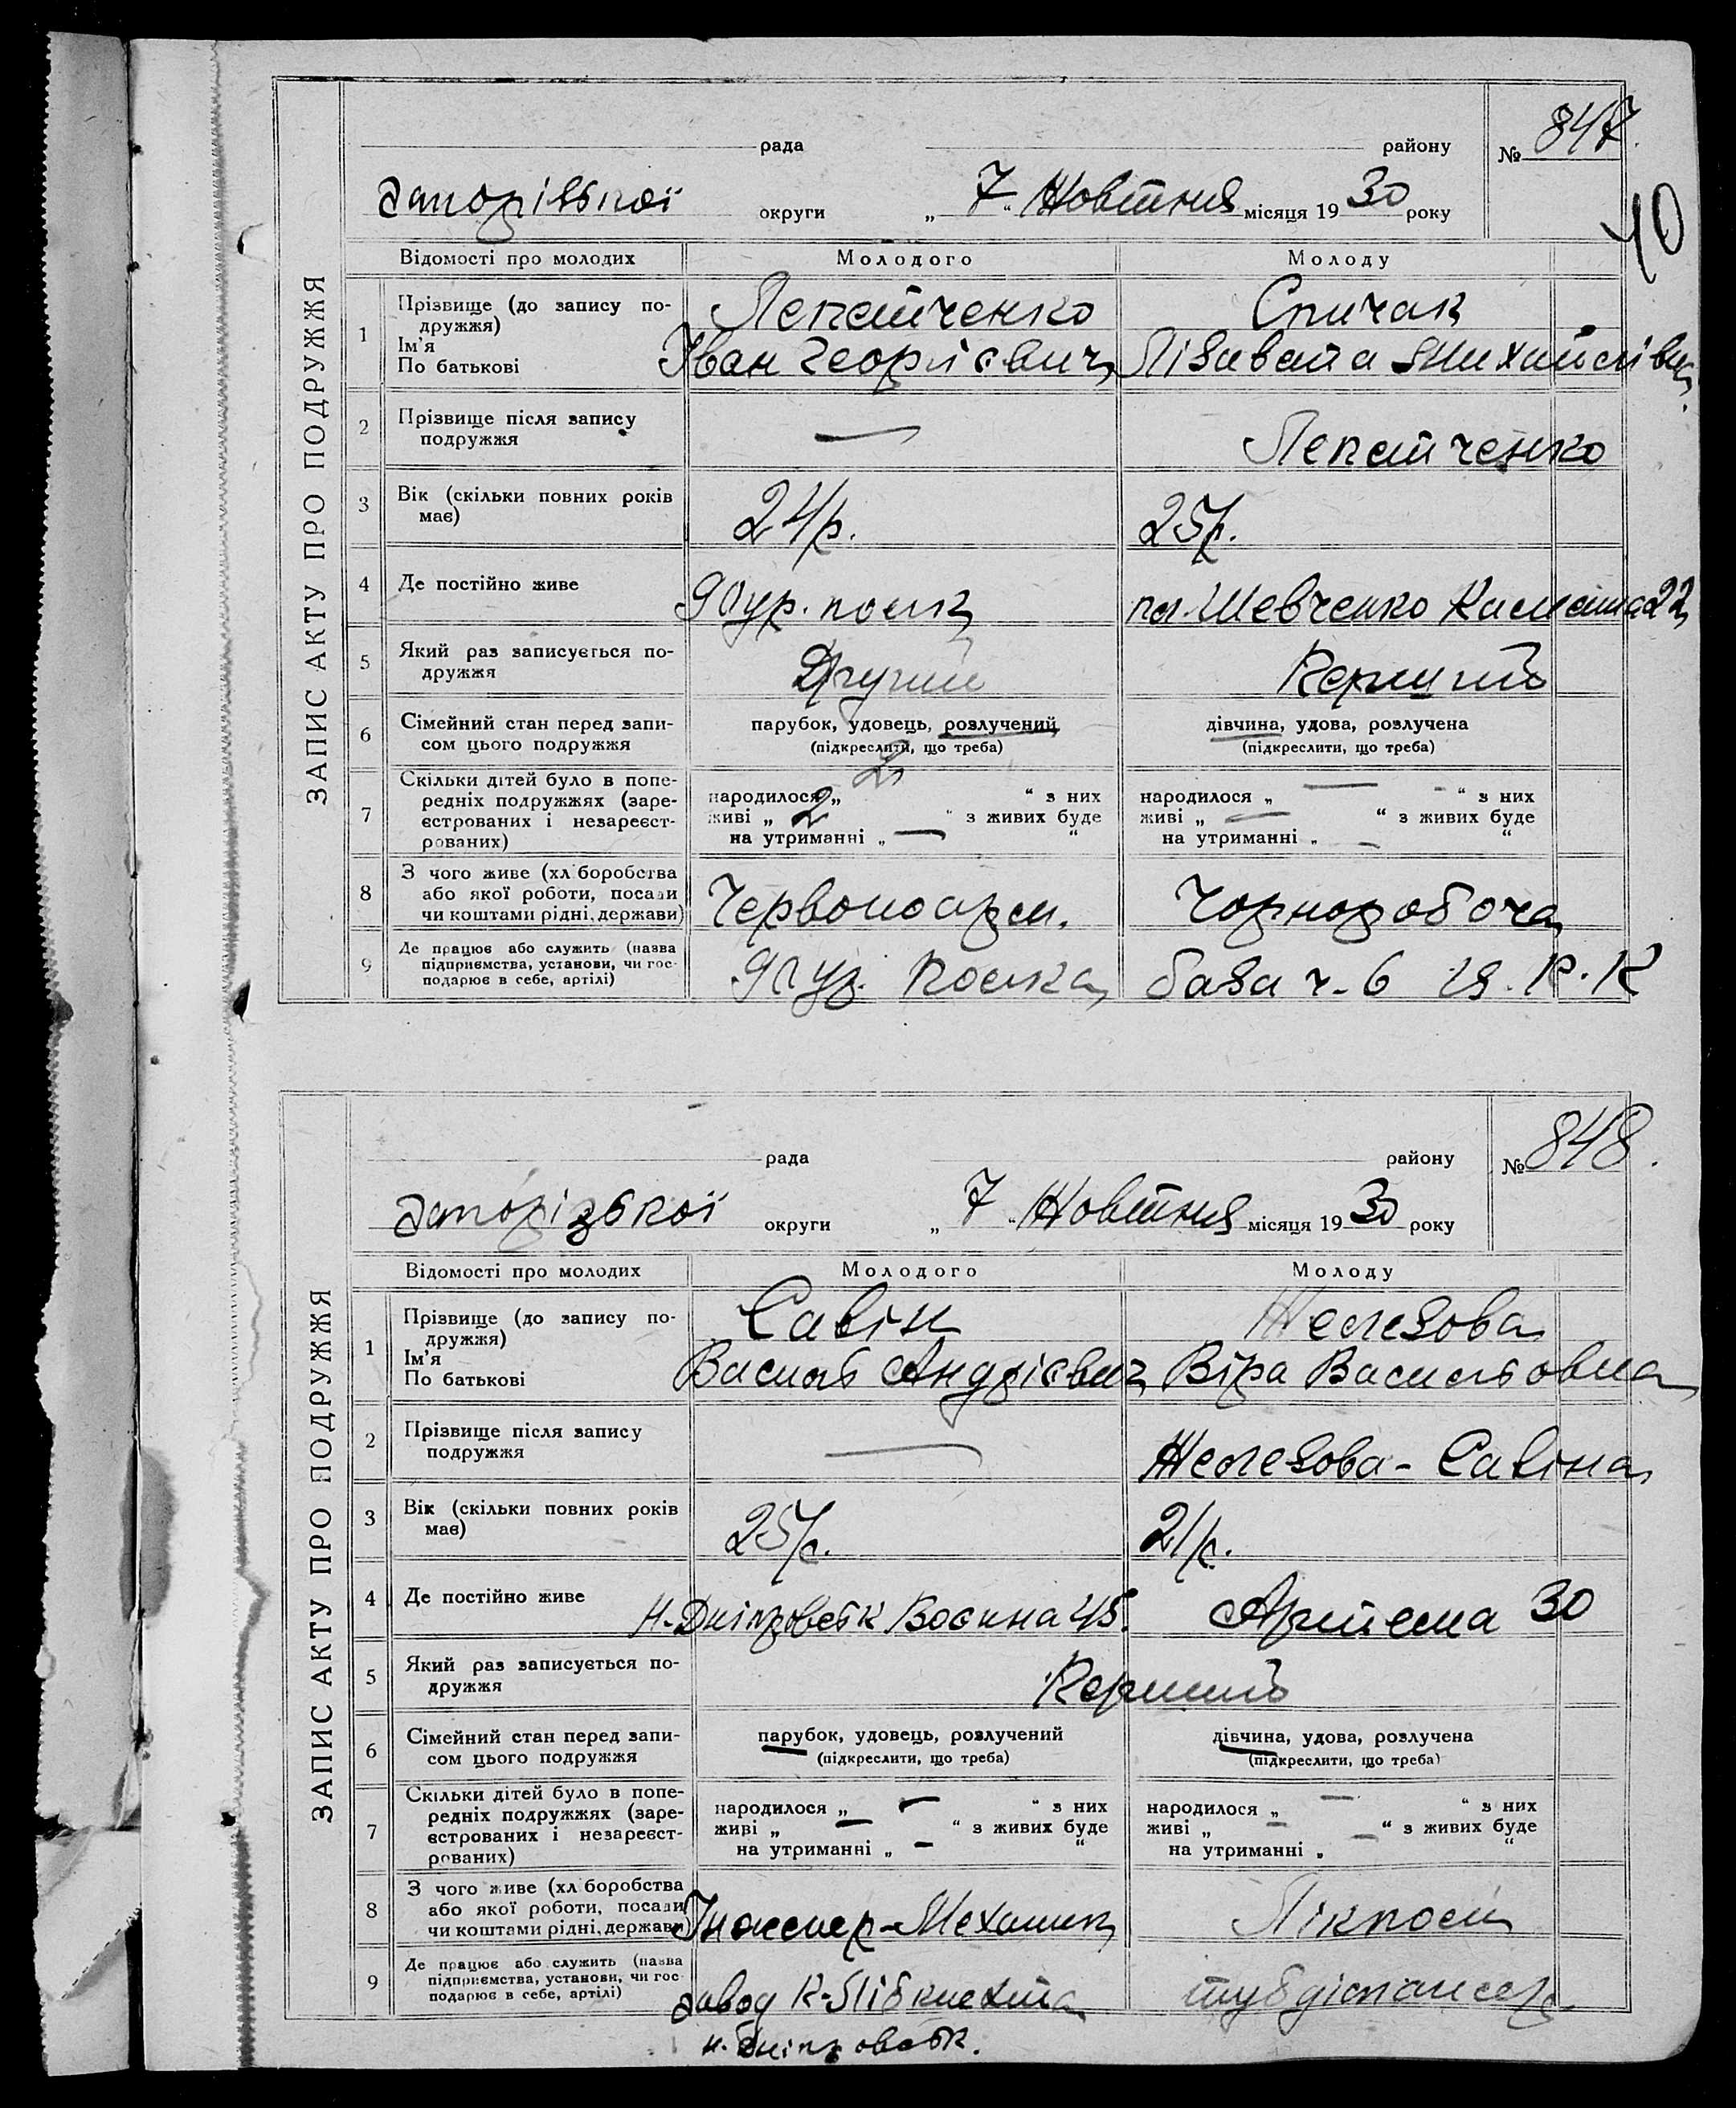 ЗАПИС АКТУ ПРО ПОДРУЖЖЯ
рада району № 847.
Запорізької округи „ 7 “ Жовтня місяця 19 30 року
40
Відомості про молодих Молодого Молоду
1 Прізвище (до запису по- Лепетченко Спичак
дружжя)
Ім'я Іван Георгієвич Лізавета Михайлівн.
По батькові
2 Прізвище після запису — Лепетченко
подружжя
3 Вік (скільки повних років 24 р. 25 р.
має)
4 Де постійно живе полк пл. Шевченко 22
5 Який раз записується по- Другий Перший
дружжя
6 Сімейний стан перед запи- парубок, удовець, розлучений дівчина, удова, розлучена
сом цього подружжя (підкреслити, що треба) (підкреслити, що треба)
7 Скільки дітей було в попе- 2
редніх подружжях (заре- народилося „ “ з них народилося „ — “ з них
єстрованих і незареєст- живі „ 2 “ з живих буде живі „ — “ з живих буде
рованих) на утриманні „ — “ на утриманні „ — “
8 З чого живе (хліборобства Червоноарм. Чорноробоча
або якої роботи, посади
чи коштами рідні, держави)
9 Де працює або служить (назва полка база ч. 6 Р. К
підприємства, установи, чи гос-
подарює в себе, артілі)
ЗАПИС АКТУ ПРО ПОДРУЖЖЯ
рада району № 848.
Запорізької округи „ 7 “ Жовтня місяця 19 30 року
Відомості про молодих Молодого Молоду
1 Прізвище (до запису по- Савін Желєзова
дружжя)
Ім'я Василь Андрієвич Віра Васильовна
По батькові
2 Прізвище після запису — Желєзова-Савіна
подружжя
3 Вік (скільки повних років 25 р. 21 р.
має)
4 Де постійно живе Н-Дніпровськ Воєнна 45. Артема 30
5 Який раз записується по- Перший
дружжя
6 Сімейний стан перед запи- парубок, удовець, розлучений дівчина, удова, розлучена
сом цього подружжя (підкреслити, що треба) (підкреслити, що треба)
7 Скільки дітей було в попе- народилося „ — “ з них народилося „ — “ з них
редніх подружжях (заре- живі „ — “ з живих буде живі „ — “ з живих буде
єстрованих і незареєст- на утриманні „ — “ на утриманні „ — “
рованих)
8 З чого живе (хліборобства Інженер-Механик Лікпом
або якої роботи, посади
чи коштами рідні, держави)
9 Де працює або служить (назва завод К-Лібкнехта тубдіспансер
підприємства, установи, чи гос-
подарює в себе, артілі)
Н. Дніпровськ.